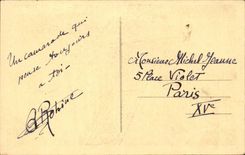 Un camarade qui
pense toujours
a toi
Monsieur Michel Jeanne
5 Place Violet
Paris
XVe